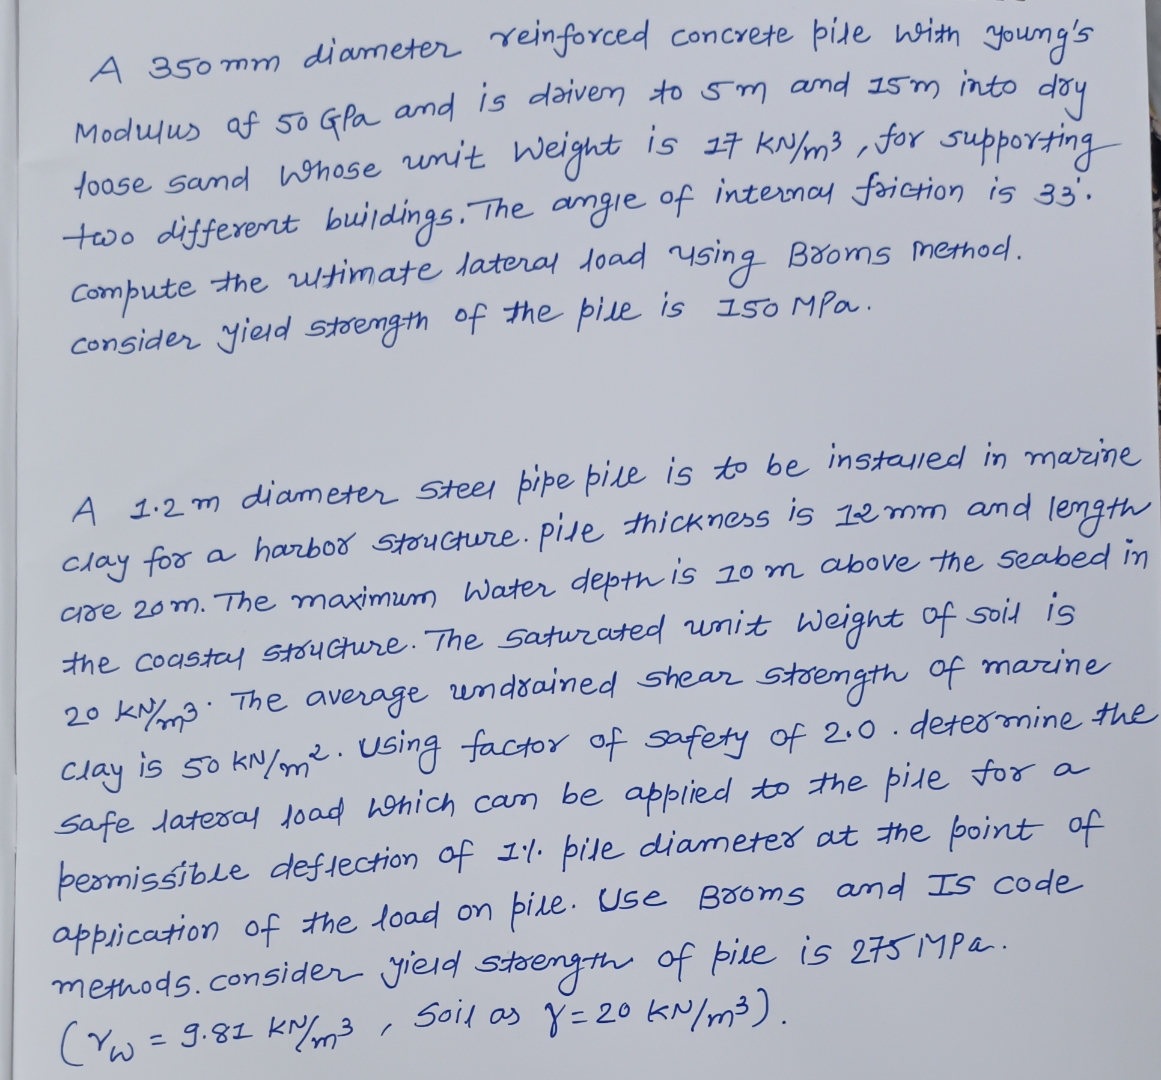 A 350 mm diameter reinforced concrete pile with young's
Modulus of 50 GPa and is driven to 5 m and 15 m into dry
loose sand whose unit weight is 17 KN/m³, for supporting
two different buildings. The angle of internal friction is 33°.
compute the ultimate lateral load using Broms method.
consider yield strength of the pile is 150 MPa.
A 1.2 m diameter steel pipe pile is to be installed in marine
clay for a harbor structure. pile thickness is 12 mm and length
are 20 m. The maximum water depth is 10 m above the seabed in
the coastal structure. The saturated unit weight of soil is
20 KN/m³. The average undrained shear strength of marine
clay is 50 KN/m². Using factor of safety of 2.0. determine the
safe lateral load which can be applied to the pile for a
permissible deflection of 1% pile diameter at the point of
application of the load on pile. Use Broms and IS code
methods. consider yield strength of pile is 275 MPa.
(γw = 9.81 KN/m³, Soil as γ = 20 KN/m³).